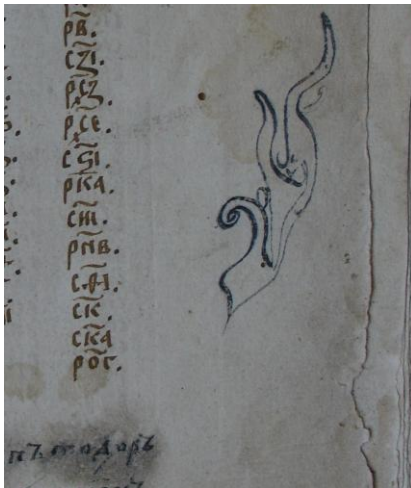 рв҃.
сз҃і.
рҁ҃з.
рҁ҃е.
сѕ҃і.
рк҃а.
си҃і.
рн҃в.
сѳ҃і.
ск҃.
ск҃а
ро҃г.
пъ тодоръ